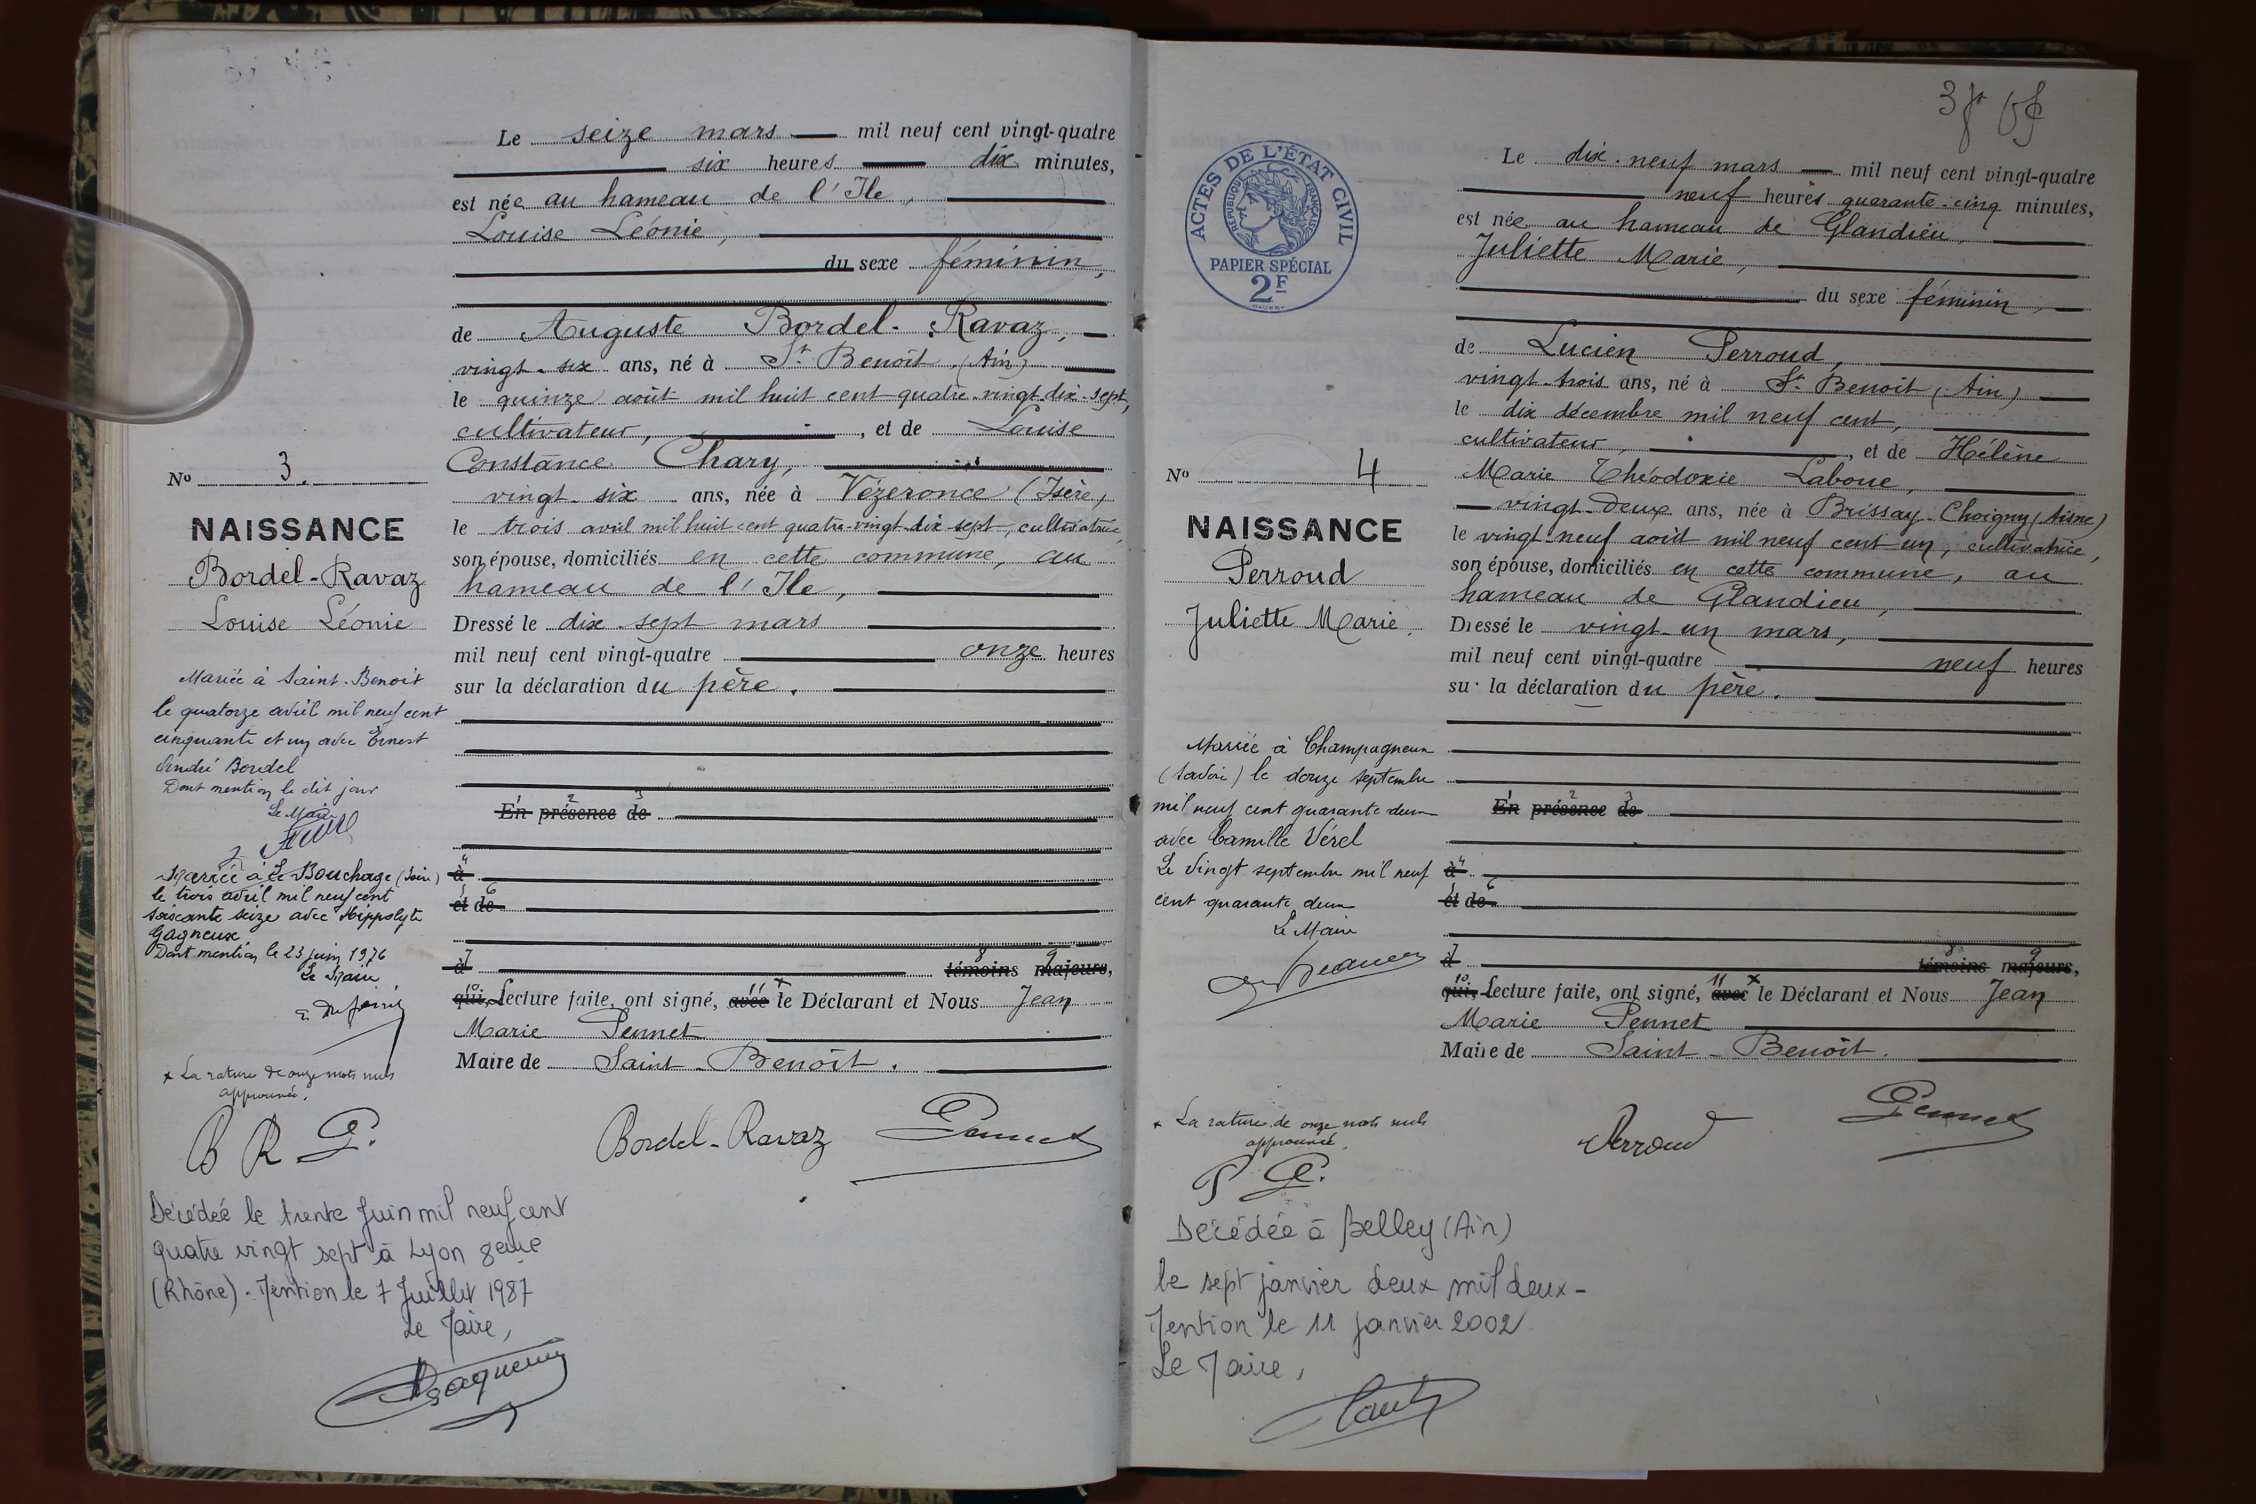 Le seize mars mil neuf cent vingt-quatre
six heures dix minutes,
est née au hameau de l'Ile,
Louise Léonie,
du sexe féminin,
de Auguste Bordel-Ravaz,
vingt-six ans, né à St Benoît (Ain)
le quinze août mil huit cent quatre-vingt-dix-sept,
cultivateur, et de Louise
Constance Chary,
vingt-six ans, née à Vézeronce (Isère)
le trois avril mil huit cent quatre-vingt-dix-sept, cultivatrice,
son épouse, domiciliés en cette commune, au
hameau de l'Ile,
Dressé le dix-sept mars
mil neuf cent vingt-quatre onze heures
sur la déclaration du père.
1 2 3
En présence de
4
à
5 6
et de
7 8 9
à témoins majeurs,
10 11 x
qui, Lecture faite, ont signé, avec le Déclarant et Nous Jean
Marie Pennet
Maire de Saint-Benoît.
Bordel-Ravaz Pennet
No 3.
NAISSANCE
Bordel-Ravaz
Louise Léonie
Mariée à Saint-Benoit
le quatorze avril mil neuf cent
cinquante et un avec Ernest
André Bordel
Dont mention le dit jour
Le Maire
Mariée à Le Bouchage (Isère)
le trois avril mil neuf cent
soixante seize avec Hippolyte
Gagneux
Dont mention le 23 juin 1976
Le Maire
x La rature de onze mots nuls
approuvée.
B R P.
Décédée le trente Juin mil neuf cent
quatre vingt sept à Lyon 8eme
(Rhône). Mention le 7 Juillet 1987
Le Maire,
ACTES DE L'ÉTAT CIVIL
RÉPUBLIQUE FRANÇAISE
PAPIER SPÉCIAL
2F
Le dix-neuf mars mil neuf cent vingt-quatre
neuf heures quarante-cinq minutes,
est née au hameau de Glandieu,
Juliette Marie,
du sexe féminin,
de Lucien Perroud,
vingt-trois ans, né à St Benoît (Ain)
le dix décembre mil neuf cent,
cultivateur, et de Hélène
Marie Théodoxie Laboue,
vingt-deux ans, née à Brissay-Choigny (Aisne)
le vingt-neuf août mil neuf cent un, cultivatrice,
son épouse, domiciliés en cette commune, au
hameau de Glandieu,
Dressé le vingt-un mars,
mil neuf cent vingt-quatre neuf heures
sur la déclaration du père.
1 2 3
En présence de
4
à
6
et de
7 8 9
à témoins majeurs,
10 11 x
qui, Lecture faite, ont signé, avec le Déclarant et Nous Jean
Marie Pennet
Maire de Saint-Benoît.
Perroud Pennet
No 4
NAISSANCE
Perroud
Juliette Marie.
Mariée à Champagneux
(Savoie) le douze septembre
mil neuf cent quarante deux
avec Camille Vérel
Le vingt septembre mil neuf
cent quarante deux
Le Maire
x La rature de onze mots nuls
approuvée.
P P.
Décédée à Belley (Ain)
le sept janvier deux mil deux-
Mention le 11 janvier 2002
Le Maire,